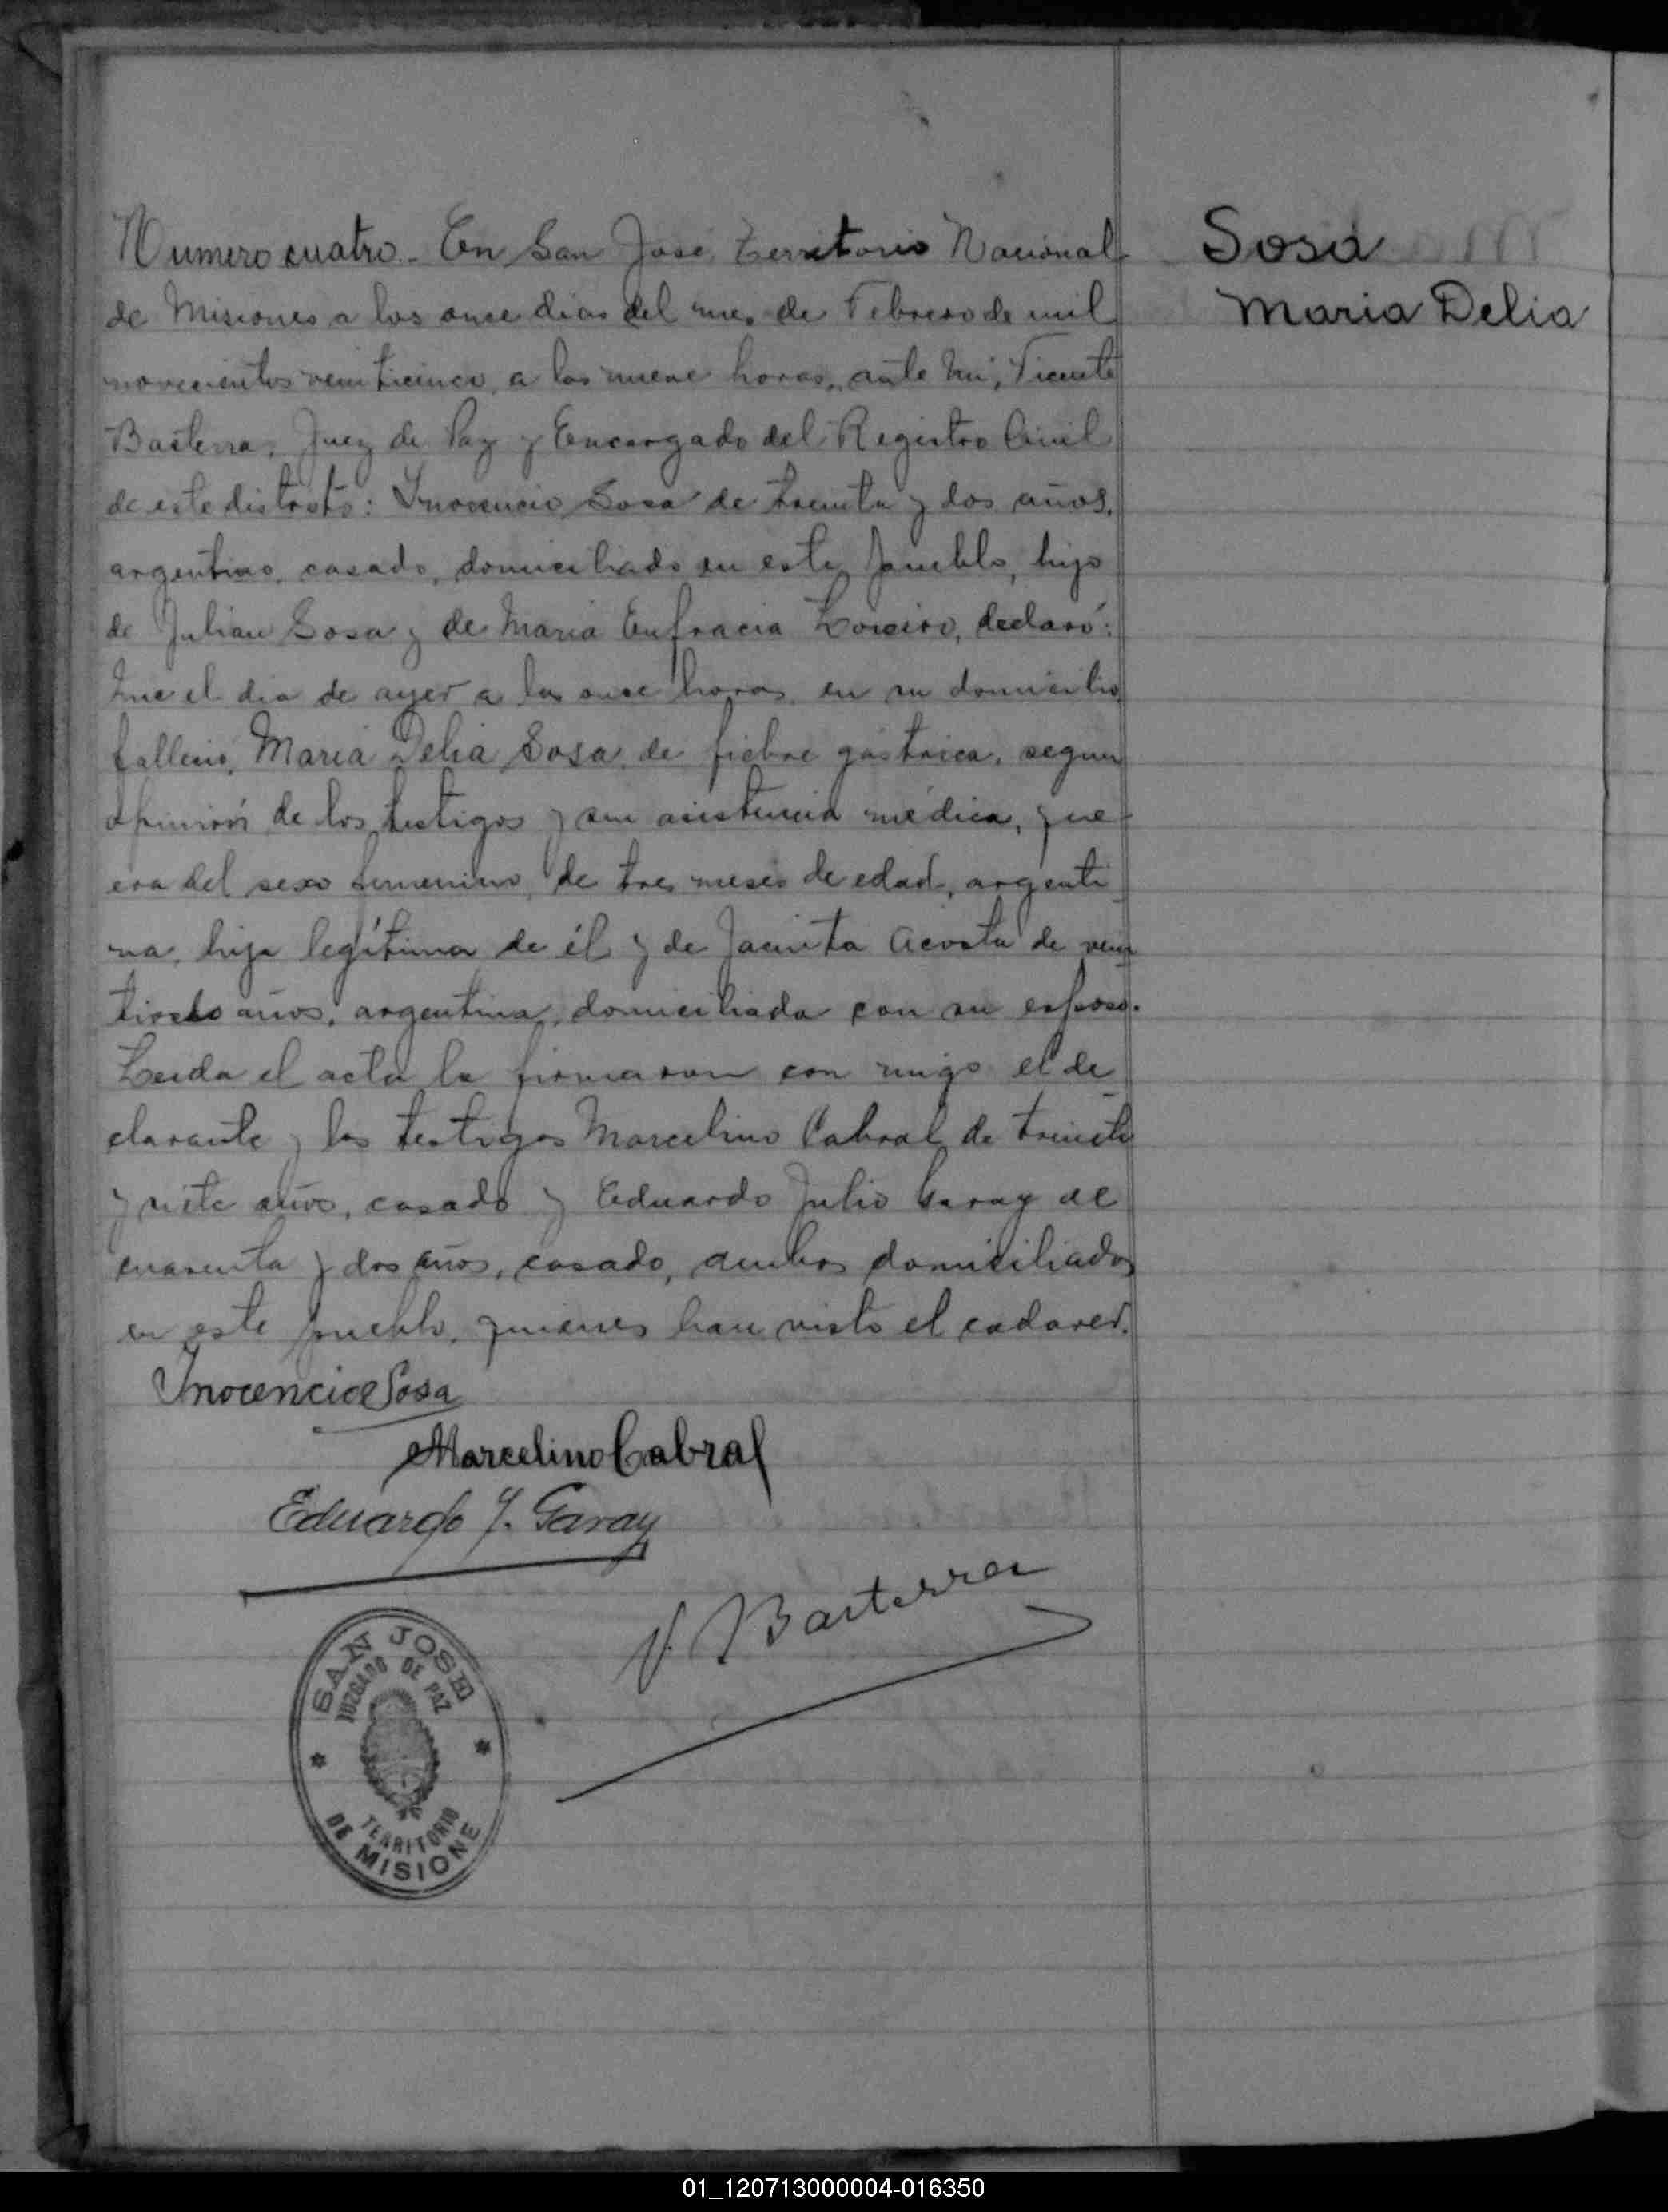 Numero cuatro.- En San José, Territorio Nacional
de Misiones a los once dias del mes de Febrero de mil
novecientos veinticinco, a las nueve horas, ante mi, Vicente
Basterra, Juez de Paz y Encargado del Registro Civil
de este distrito: Inocencio Sosa de treinta y dos años,
argentino, casado, domiciliado en este pueblo, hijo
de Julian Sosa y de Maria Eufracia declaró:
Que el dia de ayer a las once horas, en su domicilio
falleció, Maria Delia Sosa, de fiebre gástrica, segun
opinión de los testigos y sin asistencia médica, que
era del sexo femenino, de tres meses de edad, argenti
na, hija legítima de él y de Jacinta Acosta de vein
años, argentina, domiciliada con su esposo.
Leida el acta la firmaron con migo el de
clarante y los testigos Marcelino Cabral de treinta
y siete años, casado y Eduardo Julio Garay de
cuarenta y dos años, casado, ambos domiciliados
en este pueblo, quienes han visto el cadaver.
Inocencio Sosa
Marcelino Cabral
Eduardo J. Garay
V. Basterra
SAN JOSE
JUZGADO DE PAZ
TERRITORIO
DE MISIONE
Sosa
Maria Delia
01_120713000004-016350